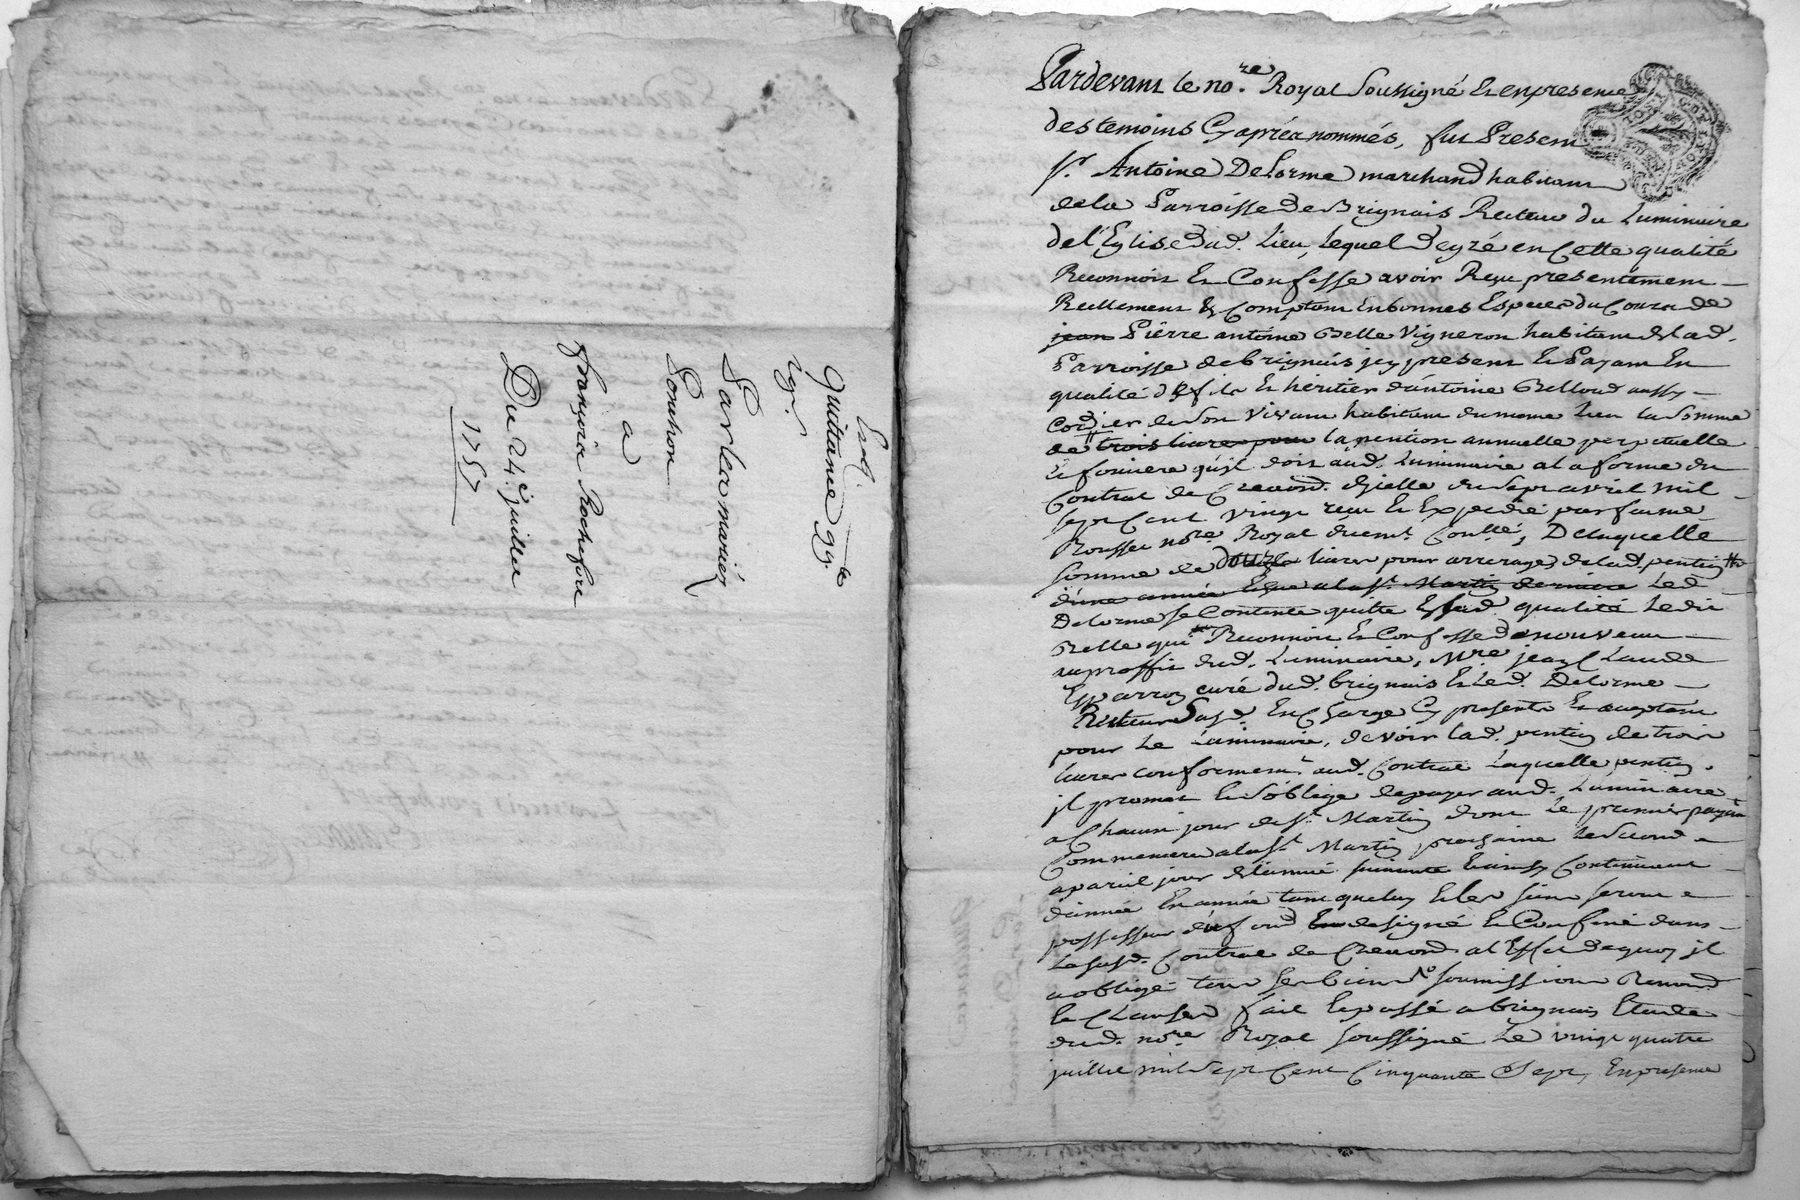 Exp.
Quittance gg.le
xgr.
Par les mariés
Souchon
a
françois Rochefort
Du 24.e juillet
1757
Pardevant le no.re Royal soussigné Et en presence
des temoins Cy aprés nommés, fut Present
sr. Antoine Delorme marchand habitant
de la Parroisse de Brignais Recteur du Luminaire
de l'Eglise dud. Lieu, Lequel de gré en Cette qualité
Reconnoit Et Confesse avoir Reçu presentement
Reellement & Comptant En bonnes Especes du Cours de
jean Piërre antoine Belle Vigneron habitant de lad.
Parroisse de brignais jcy present Et Payant En
qualité de fils Et héritier d'antoine Belle aussy
Cordier de son Vivant habitant du meme Lieu la somme
de trois livres pour la pention annuelle perpetuelle
Et fonciere qu'jl doit aud. Luminaire a la forme du
Contrat de du sept avril mil
sept Cent vingt reçu Et Expedié par feu me
Rousset nore Royal Contllé, De laquelle
somme de douze livres pour arrerages de lad. pention
d'une année Echue a la st. Martin derniere Led.
Delorme se Contente quitte Esd. qualité Ledit
Belle qui Reconnoit Et Confesse de nouveau
au proffit dud. Luminaire, Mre jean Claude
curé dud. brignais Et Led. Delorme
Recteur Susd. En Charge Cy presents Et acceptant
pour Le Luminaire, devoir lad. pention de trois
livres conformemt. aud. Contrat Laquelle pention
jl promet Et s'oblige de payer aud. Luminaire
a Chacun jour de st. Martin dont Le premier payemt
Commencera a la st. Martin prochaine Le second
a pareil jour de l'année suivante Et ainsy Continuer
d'année En année tant que luy Et les siens seront
possesseurs du fond designé Et Confiné dans
Le susd. Contrat de a l'Effet de quoy jl
a obligé tous ses biens soumissions Renond.
Et Clauses fait Et passé a brignais Etude
dud. nore Royal soussigné Le vingt quatre
juillet mil sept Cent Cinquante Sept, En presence